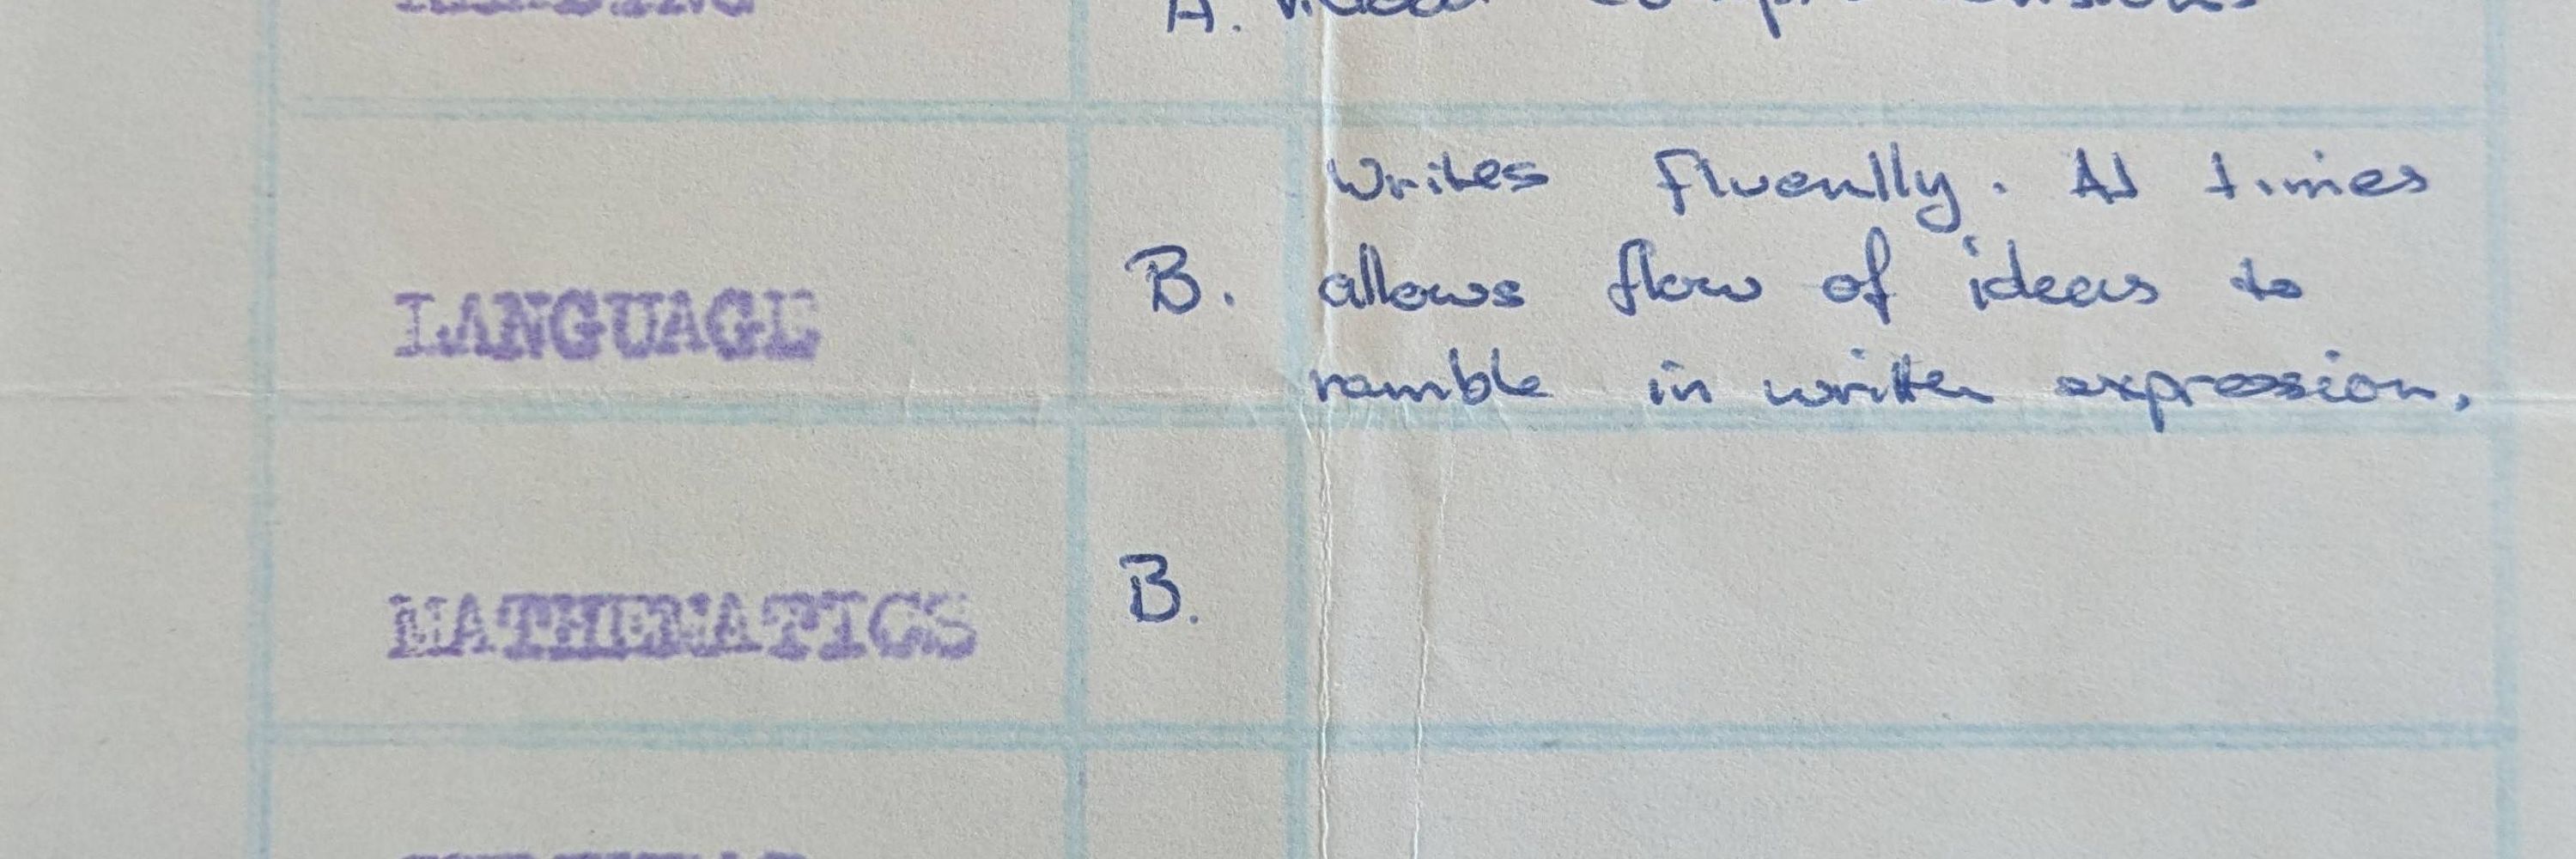 READING
A.
Writes fluently. At times
B. allows flow of ideas to
LANGUAGE
ramble in written expression,
B.
MATHEMATICS